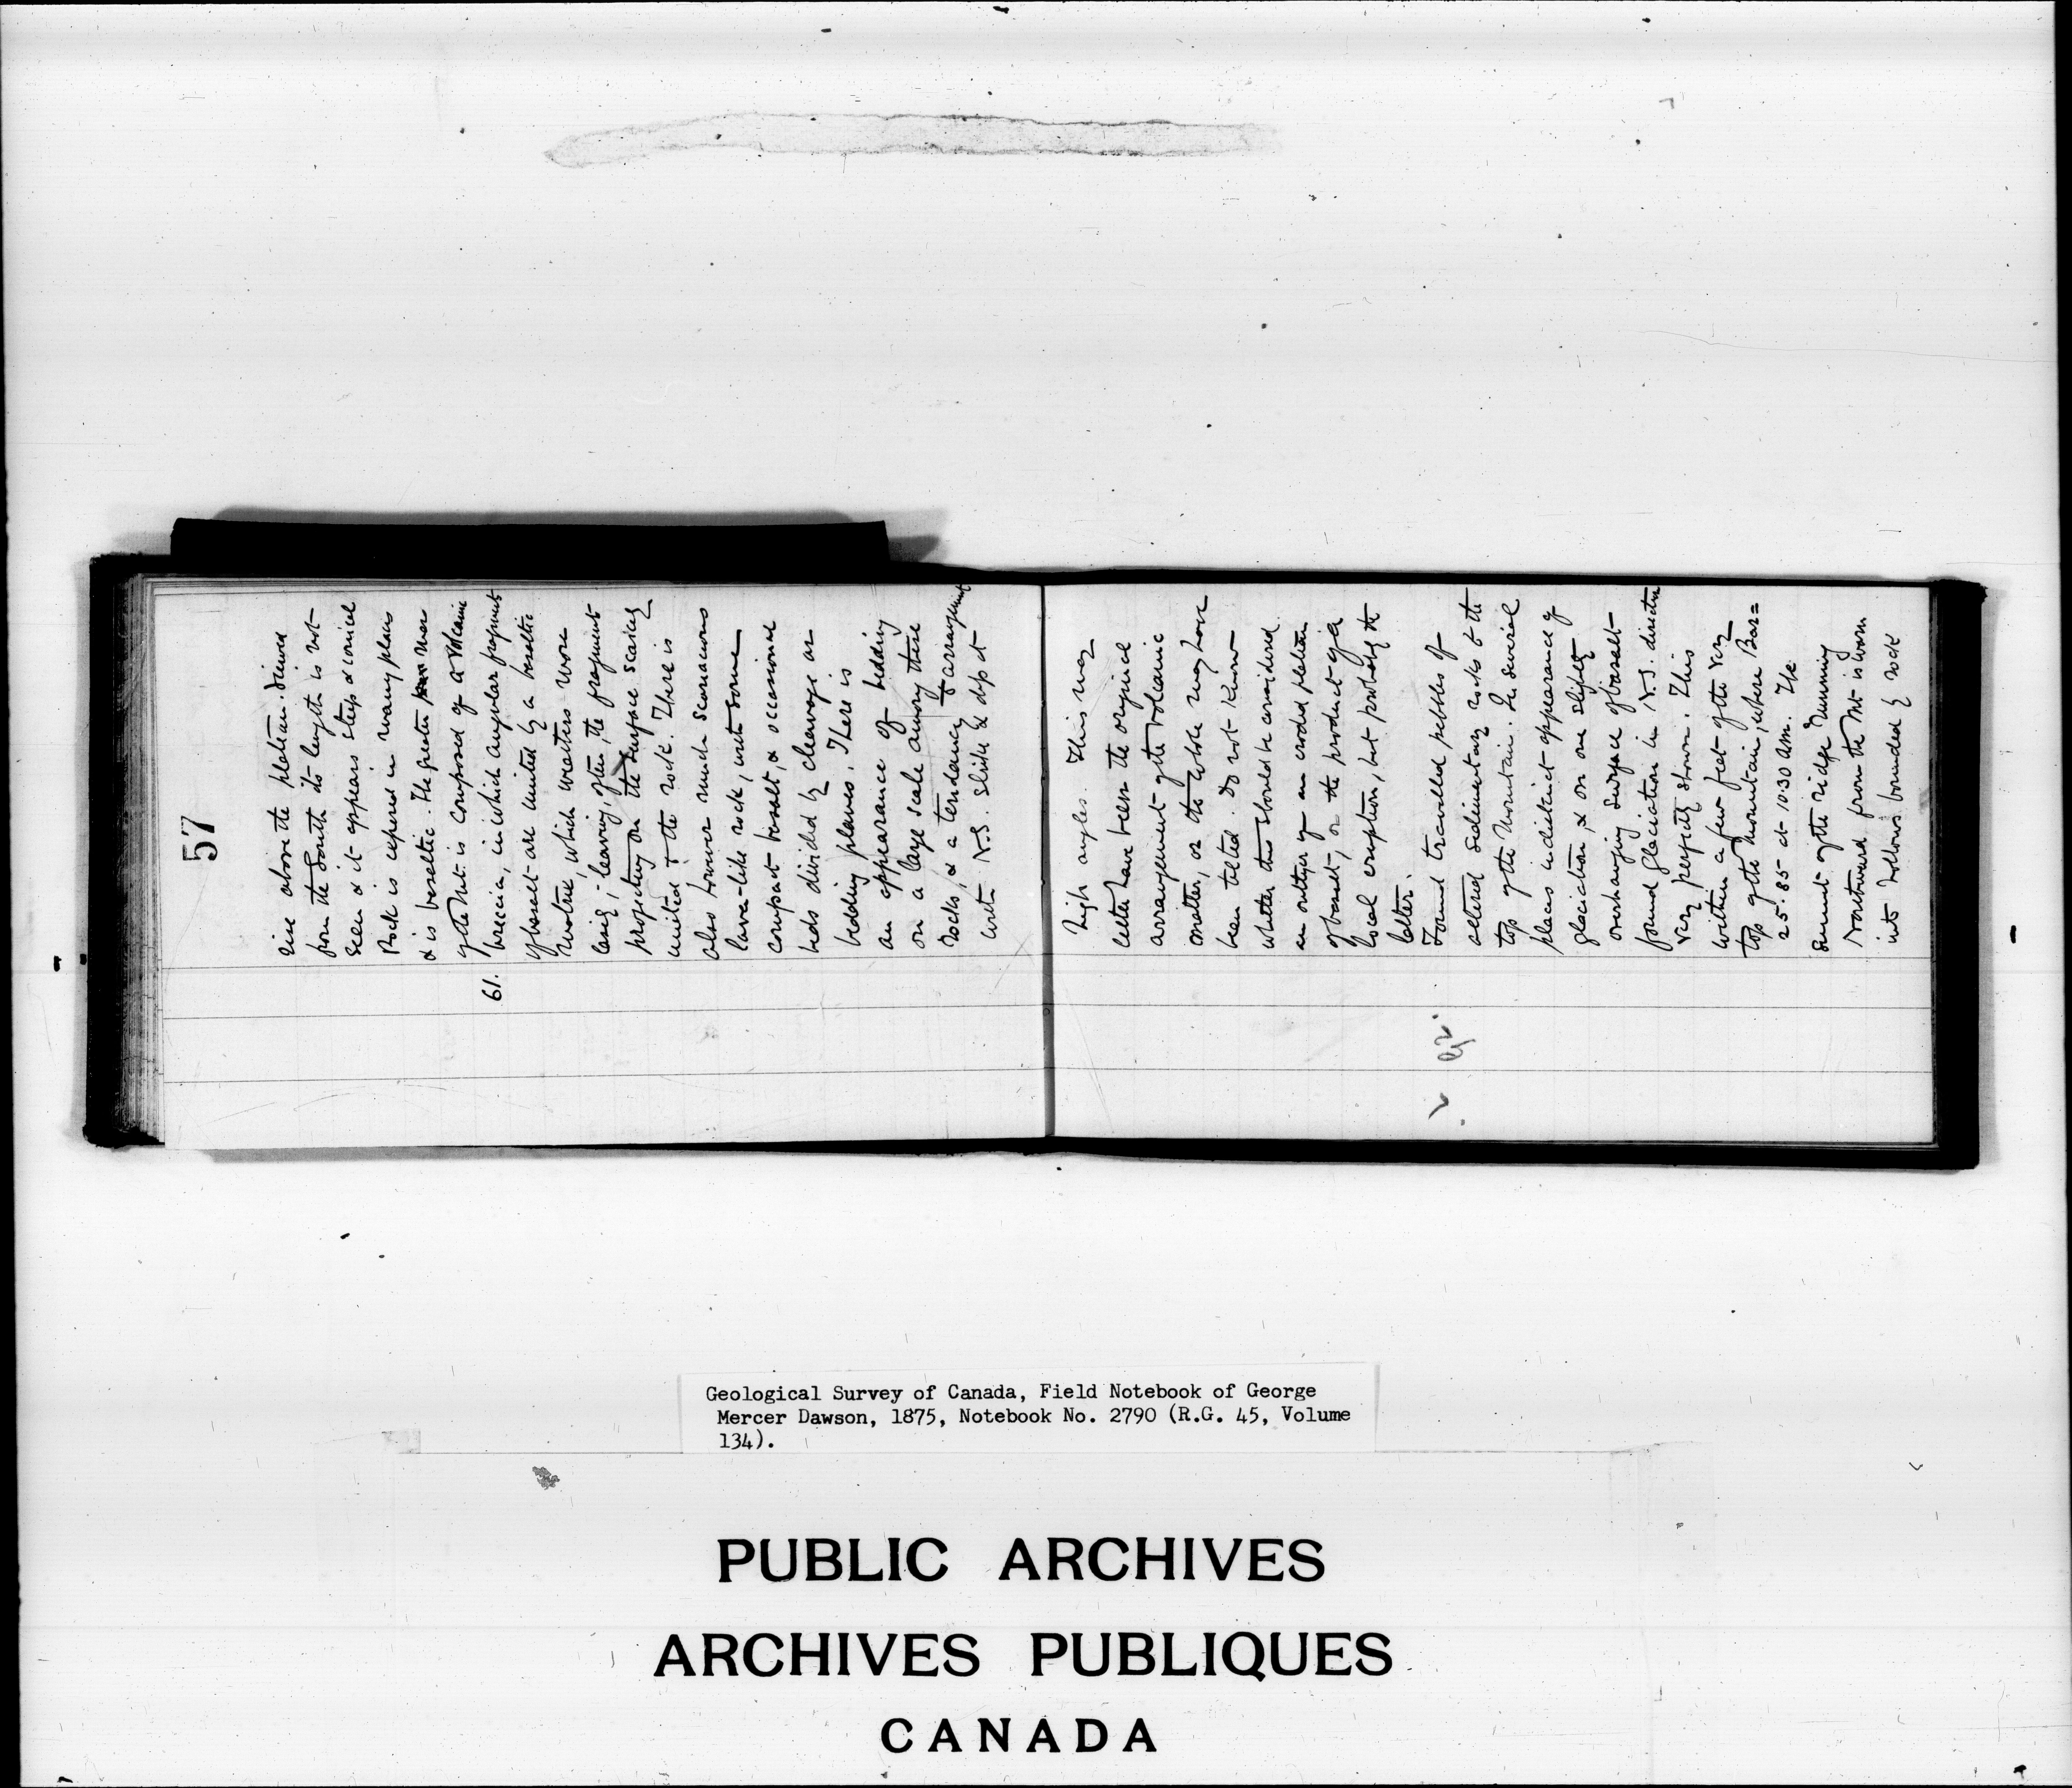 57
rise above the plateau. Viewed
from the South its length is not
seen & it appears steep & conical
Rock is exposed in many places
& is basaltic. The greater mass
of the Mt. is composed of a Volcanic
61. breccia, in which angular fragments
of basalt are united by a basaltic
matrix, which weathers more
easily, leaving, often, the fragments
projecting on the surface scarcely
united to the rock. There is
also however much scoriaceous
lava-like rock, with some
compact basalt, & occasional
beds divided by cleavage or
bedding planes. There is
an appearance of bedding
on a large scale among these
rocks, & a tendency to arrangement
with N.S. strike & dip at
high angles. This may
either have been the original
arrangement of the volcanic
matter, or the whole may have
been tilted. Do not know
whether this should be considered
an outlyer of an eroded plateau
of basalt, or the product of a
local eruption, but probably the
latter.
Found travelled pebbles of
altered Sedimentary rocks to the
top of the Mountain. In several
places indistinct appearance of
glaciation, & on one slightly
overhanging surface of basalt
found glaciation in N.S. direction
very perfectly shown. This
within a few feet of the very
top of the mountain, where Bar=
25.85 at 10.30 AM. The
summit of the ridge running
Northward from the Mt is worn
into hollows bounded by rock
Geological Survey of Canada, Field Notebook of George
Mercer Dawson, 1875, Notebook No. 2790 (R.G. 45, Volume
134).
PUBLIC ARCHIVES
ARCHIVES PUBLIQUES
CANADA